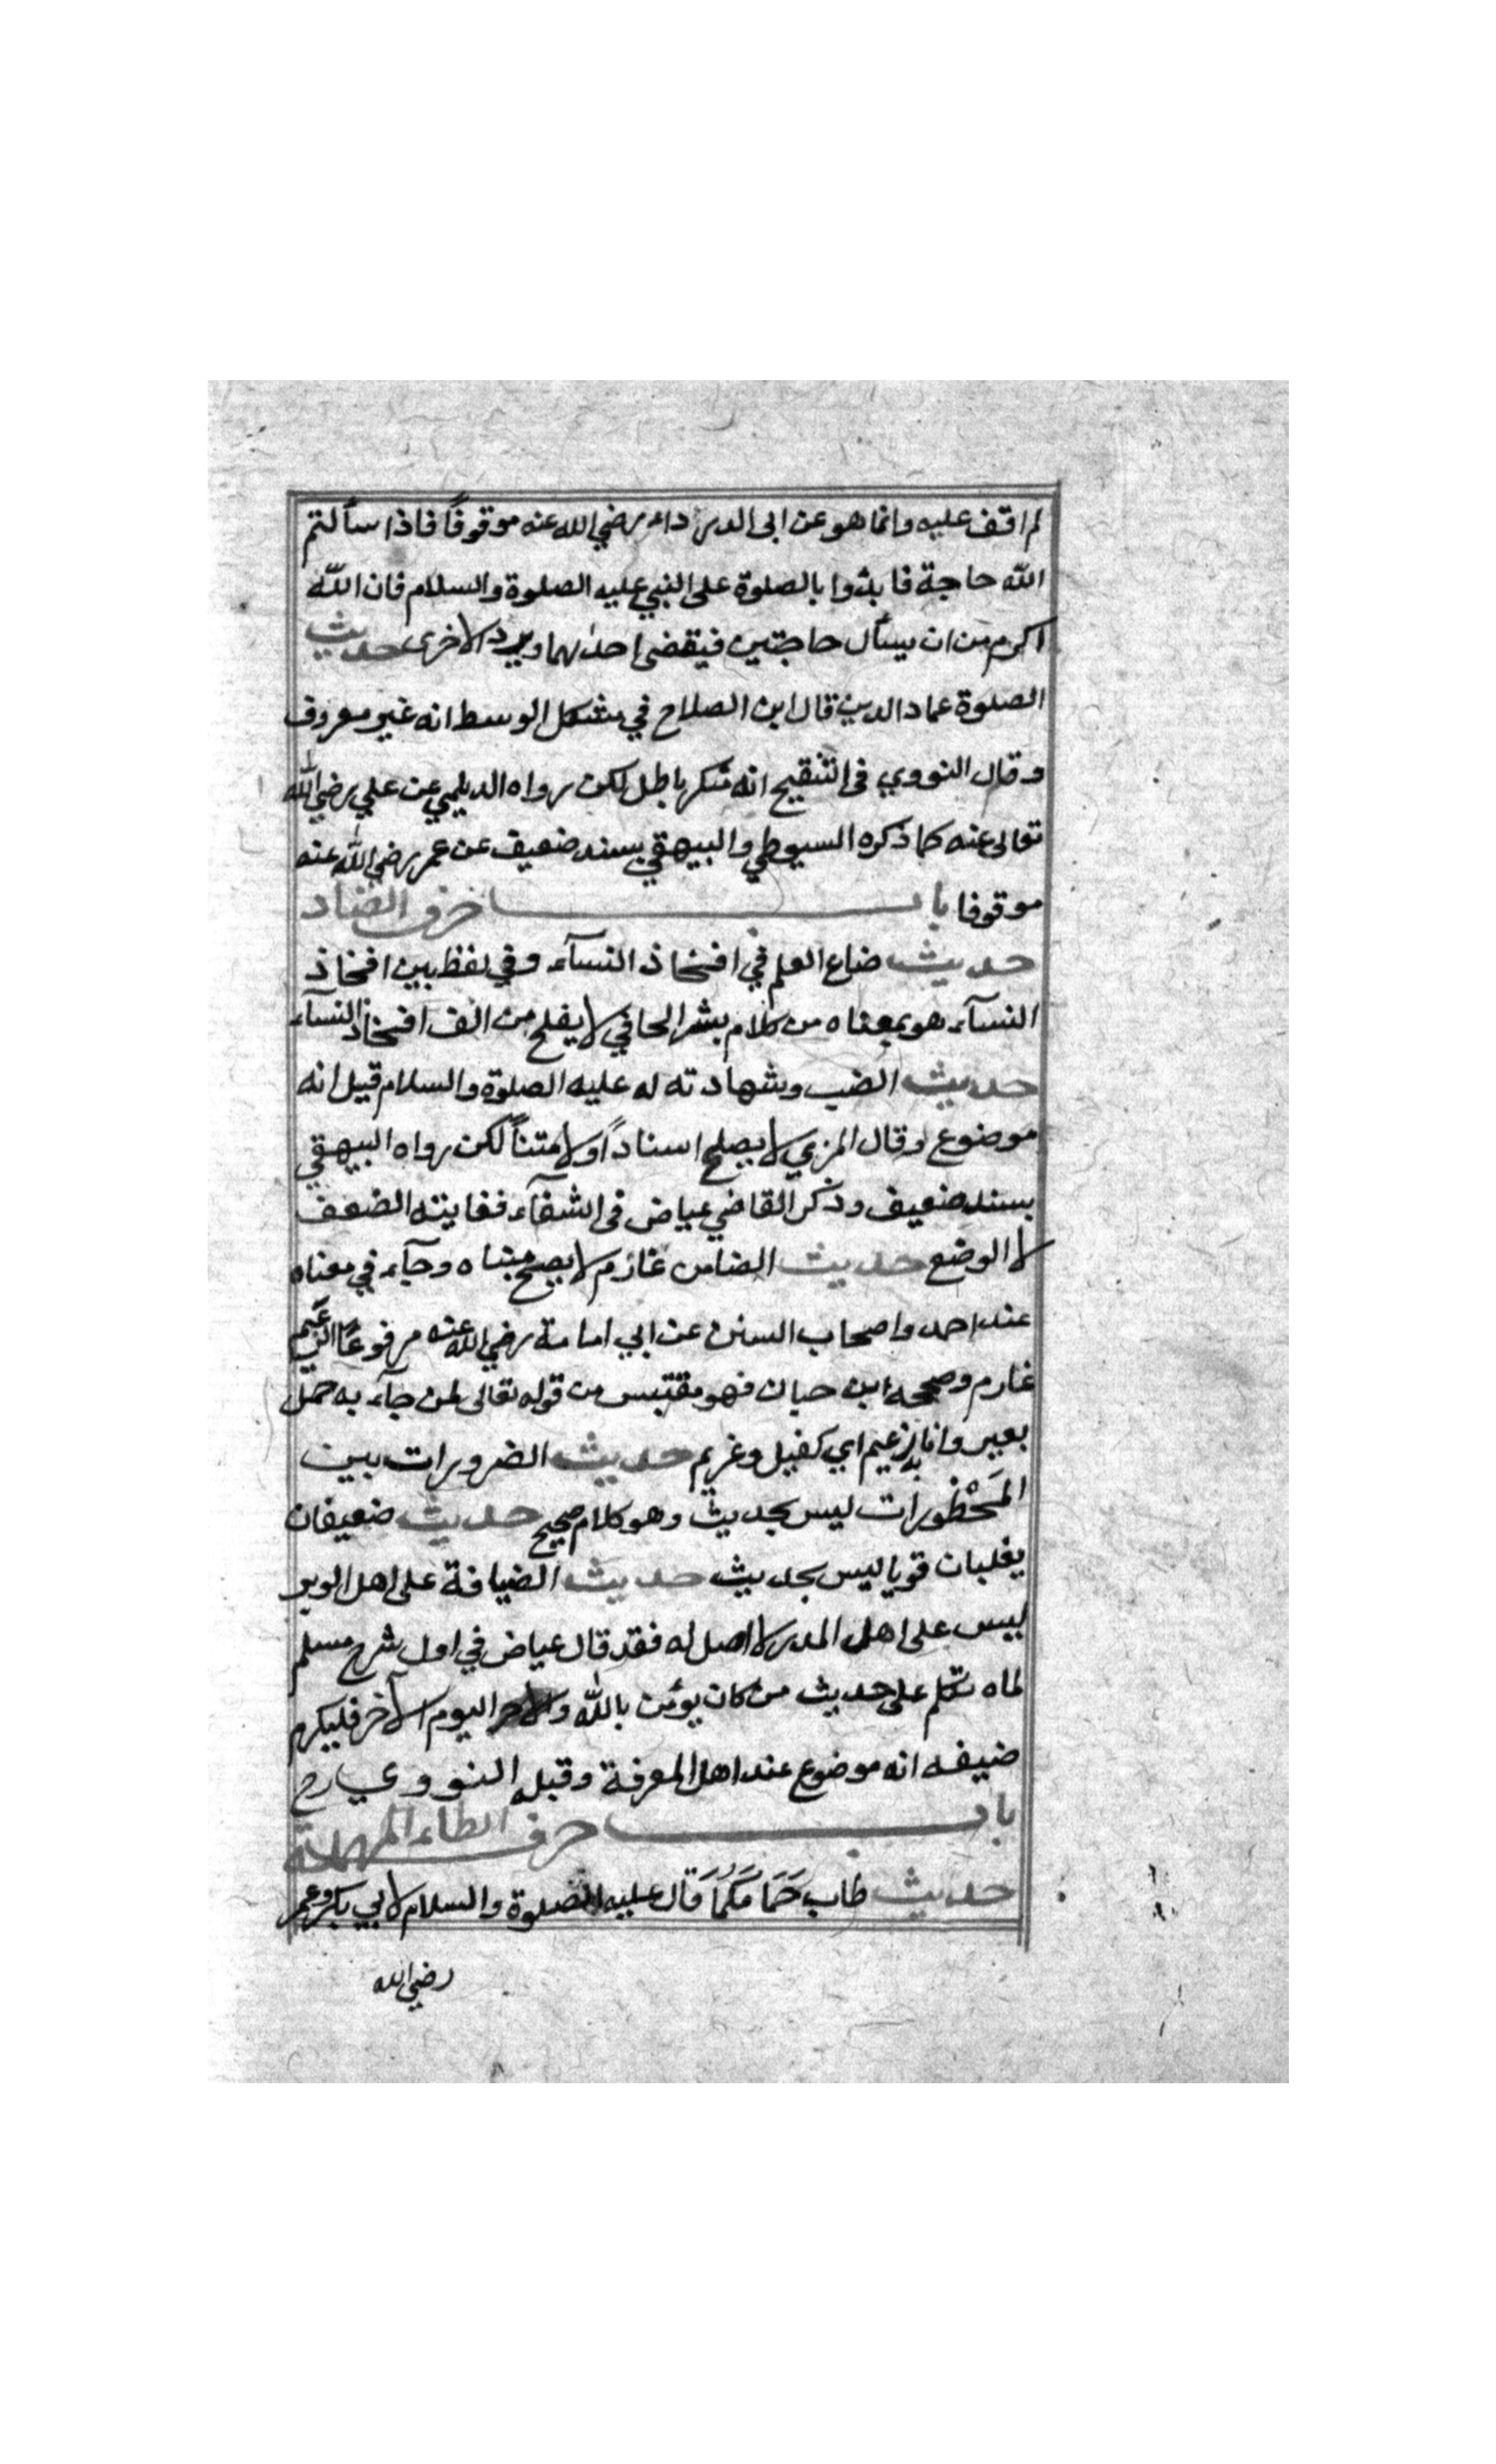 لم اقف عليه وانما هو عن ابى الدرداء رضي الله عنه موقوفًا فاذا سألتم
الله حاجة فابدؤا بالصلوة على النبي عليه الصلوة والسلام فان الله
اكرم من ان يسأل حاجتين فيقضى احدٰهما ويرد الاخرى حديث
الصلوة عماد الدين قال ابن الصلاح في مشكل الوسط انه غير معروف
وقال النووي فى التنقيح انه منكر باطل لكن رواه الديلمي عن علي رضي الله
تعالى عنه كما ذكره السيوطي والبيهقي بسند ضعيف عن عمر رضي الله عنه
موقوفا باب حرف الضاد
حديث ضاع العلم في افخاذ النسآء وفي لفظ بين افخاذ
النسآء هو بمعناه من كلام بشر الحافي لا يفلح من الف افخاذ النسآء
حديث الضب وشهادته له عليه الصلوة والسلام قيل انه
موضوع وقال المزي لا يصلح اسنادًا ولا متنًا لكن رواه البيهقي
بسند ضعيف وذكر القاضي عياض فى الشفآء فغايته الضعف
لا الوضع حديث الضامن غارم لا يصح مبناه وجآء في معناه
عند احمد واصحاب السنن عن ابي امامة رضي الله عنه مرفوعًا الزعيم
غارم وصححه ابن حبان فهو مقتبس من قوله تعالى لمن جآء به حمل
بعير وانا به زعيم اي كفيل وغريم حديث الضرورات تبيح
المَحْظورات ليس بحديث وهو كلام صحيح حديث ضعيفان
يغلبان قويا ليس بحديث حديث الضيافة على اهل الوبر
ليس على اهل المدر لا اصل له فقد قال عياض في اول شرح مسلم
لماه تكلم على حديث من كان يؤمن بالله واليوم الآخر فليكرم
ضيفه انه موضوع عند اهل المعرفة وقبله النووي رح
باب حرف الطاء المهملة
حديث طاب حَمامَكُمَا قال عليه الصلوة والسلام لابي بكر وعمر
رضي الله